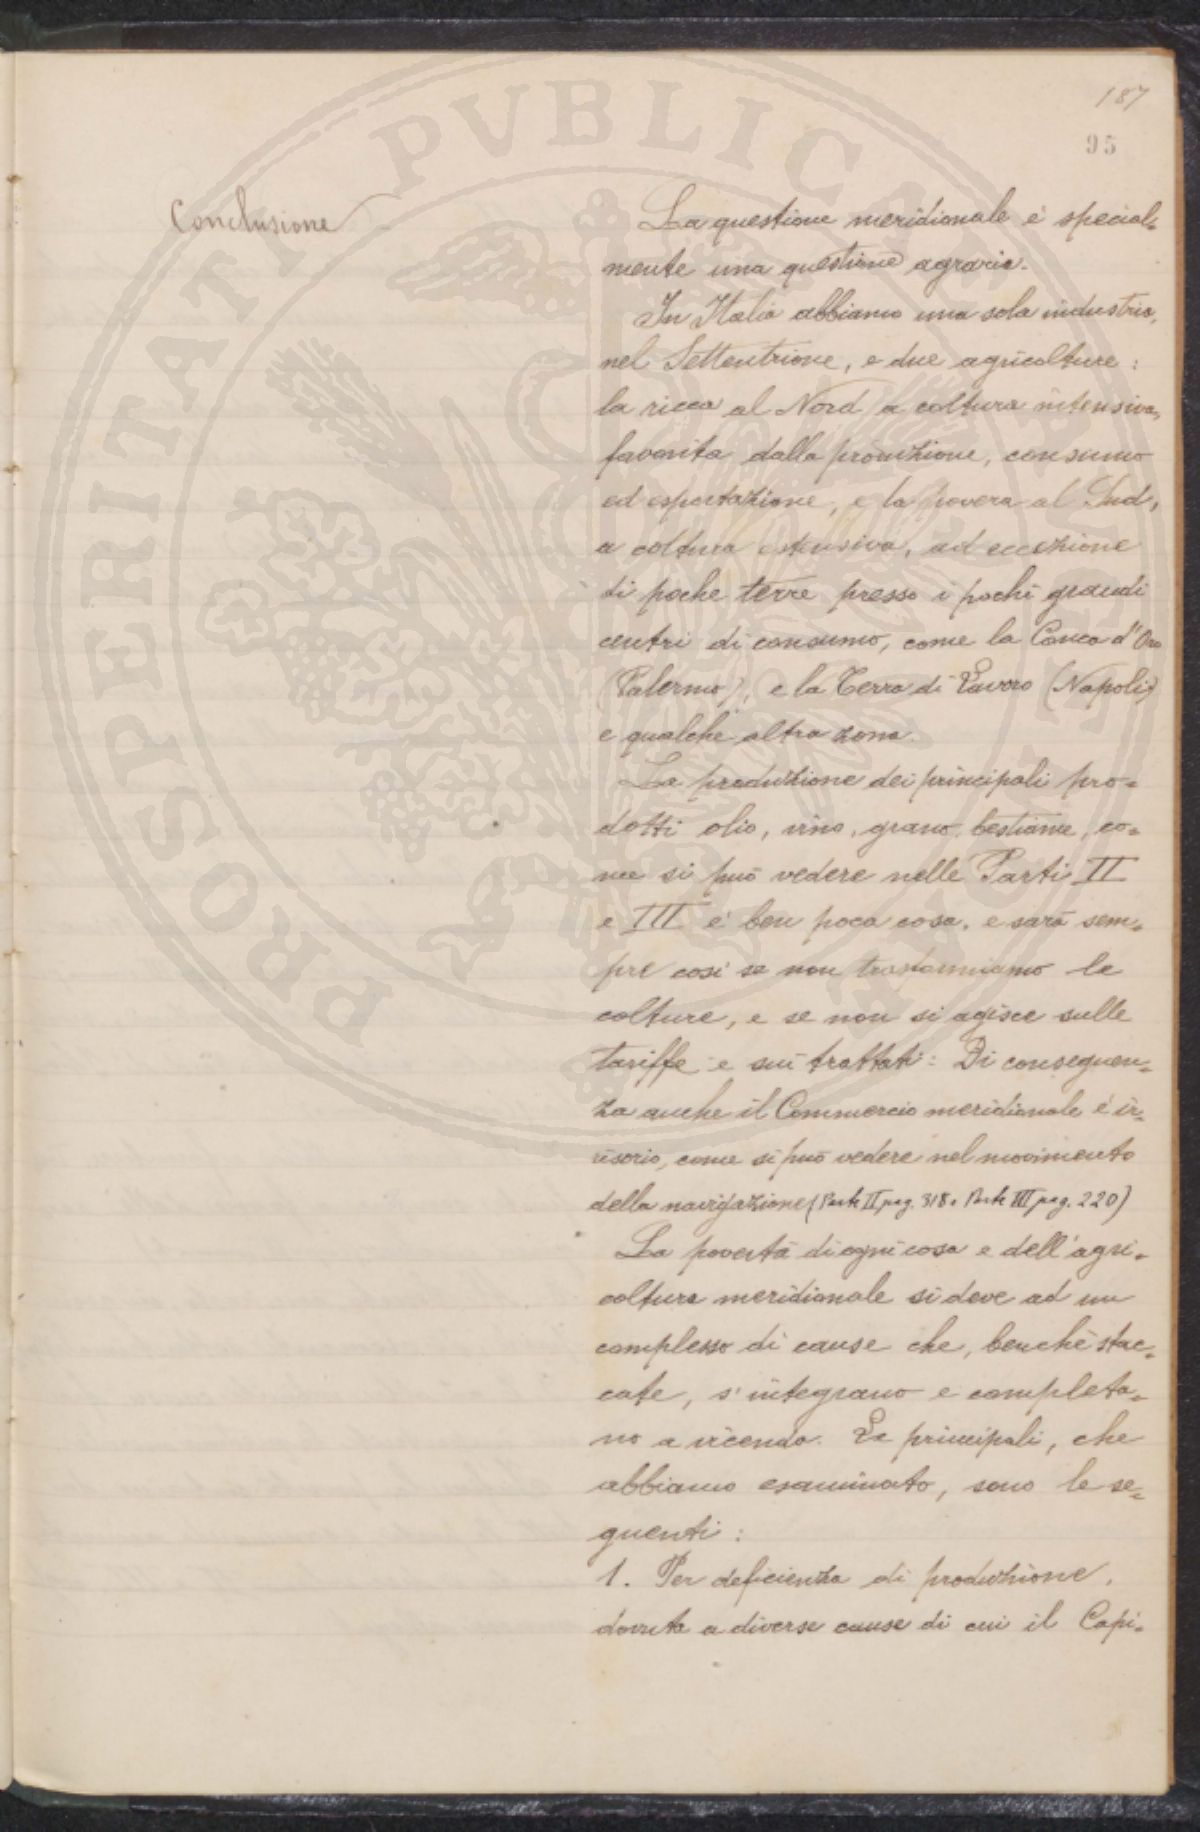 187
95
Conclusione
La questione meridionale è special=
mente una questione agraria.
In Italia abbiamo una sola industria,
nel Settentrione, e due agricolture:
la ricca al Nord a coltura intensiva,
favorita dalla produzione, consumo
ed esportazione, e la povera al Sud,
a coltura estensiva, ad eccezione
di poche terre presso i pochi grandi
centri di consumo, come la Conca d'Oro
(Palermo), e la Terra di Lavoro (Napoli)
e qualche altra zona.
La produzione dei principali pro=
dotti olio, vino, grano, bestiame, co=
me si può vedere nelle Parti II
e III è ben poca cosa, e sarà sem=
pre così se non trasformiamo le
colture, e se non si agisce sulle
tariffe e sui trattati: Di conseguen=
za anche il Commercio meridionale è ir=
risorio, come si può vedere nel movimento
della navigazione (Parte II pag. 318 e Parte III pag. 220)
La povertà di ogni cosa e dell'agri=
coltura meridionale si deve ad un
complesso di cause che, benchè stac=
cate, s'integrano e completa=
no a vicenda. Le principali, che
abbiamo esaminato, sono le se=
guenti:
1. Per deficienza di produzione,
dovuta a diverse cause di cui il Capi=
PROSPERITATI PVBLICAE